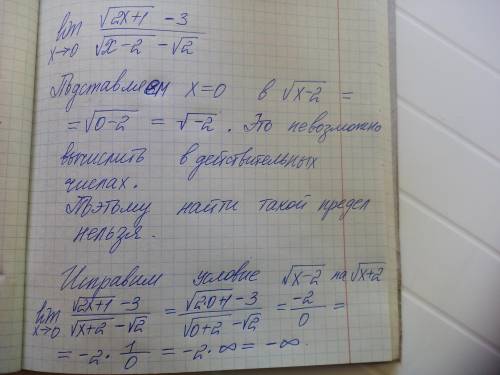 lim x→0 (√(2x+1) - 3) / (√(x-2) - √2)
Подставляем x=0 в √(x-2) =
= √(0-2) = √-2. Это невозможно
вычислить в действительных
числах.
Поэтому найти такой предел
нельзя.
Исправим условие √(x-2) на √(x+2)
lim x→0 (√(2x+1) - 3) / (√(x+2) - √2) = (√(2·0+1) - 3) / (√(0+2) - √2) = -2/0 =
= -2 · 1/0 = -2·∞ = -∞.